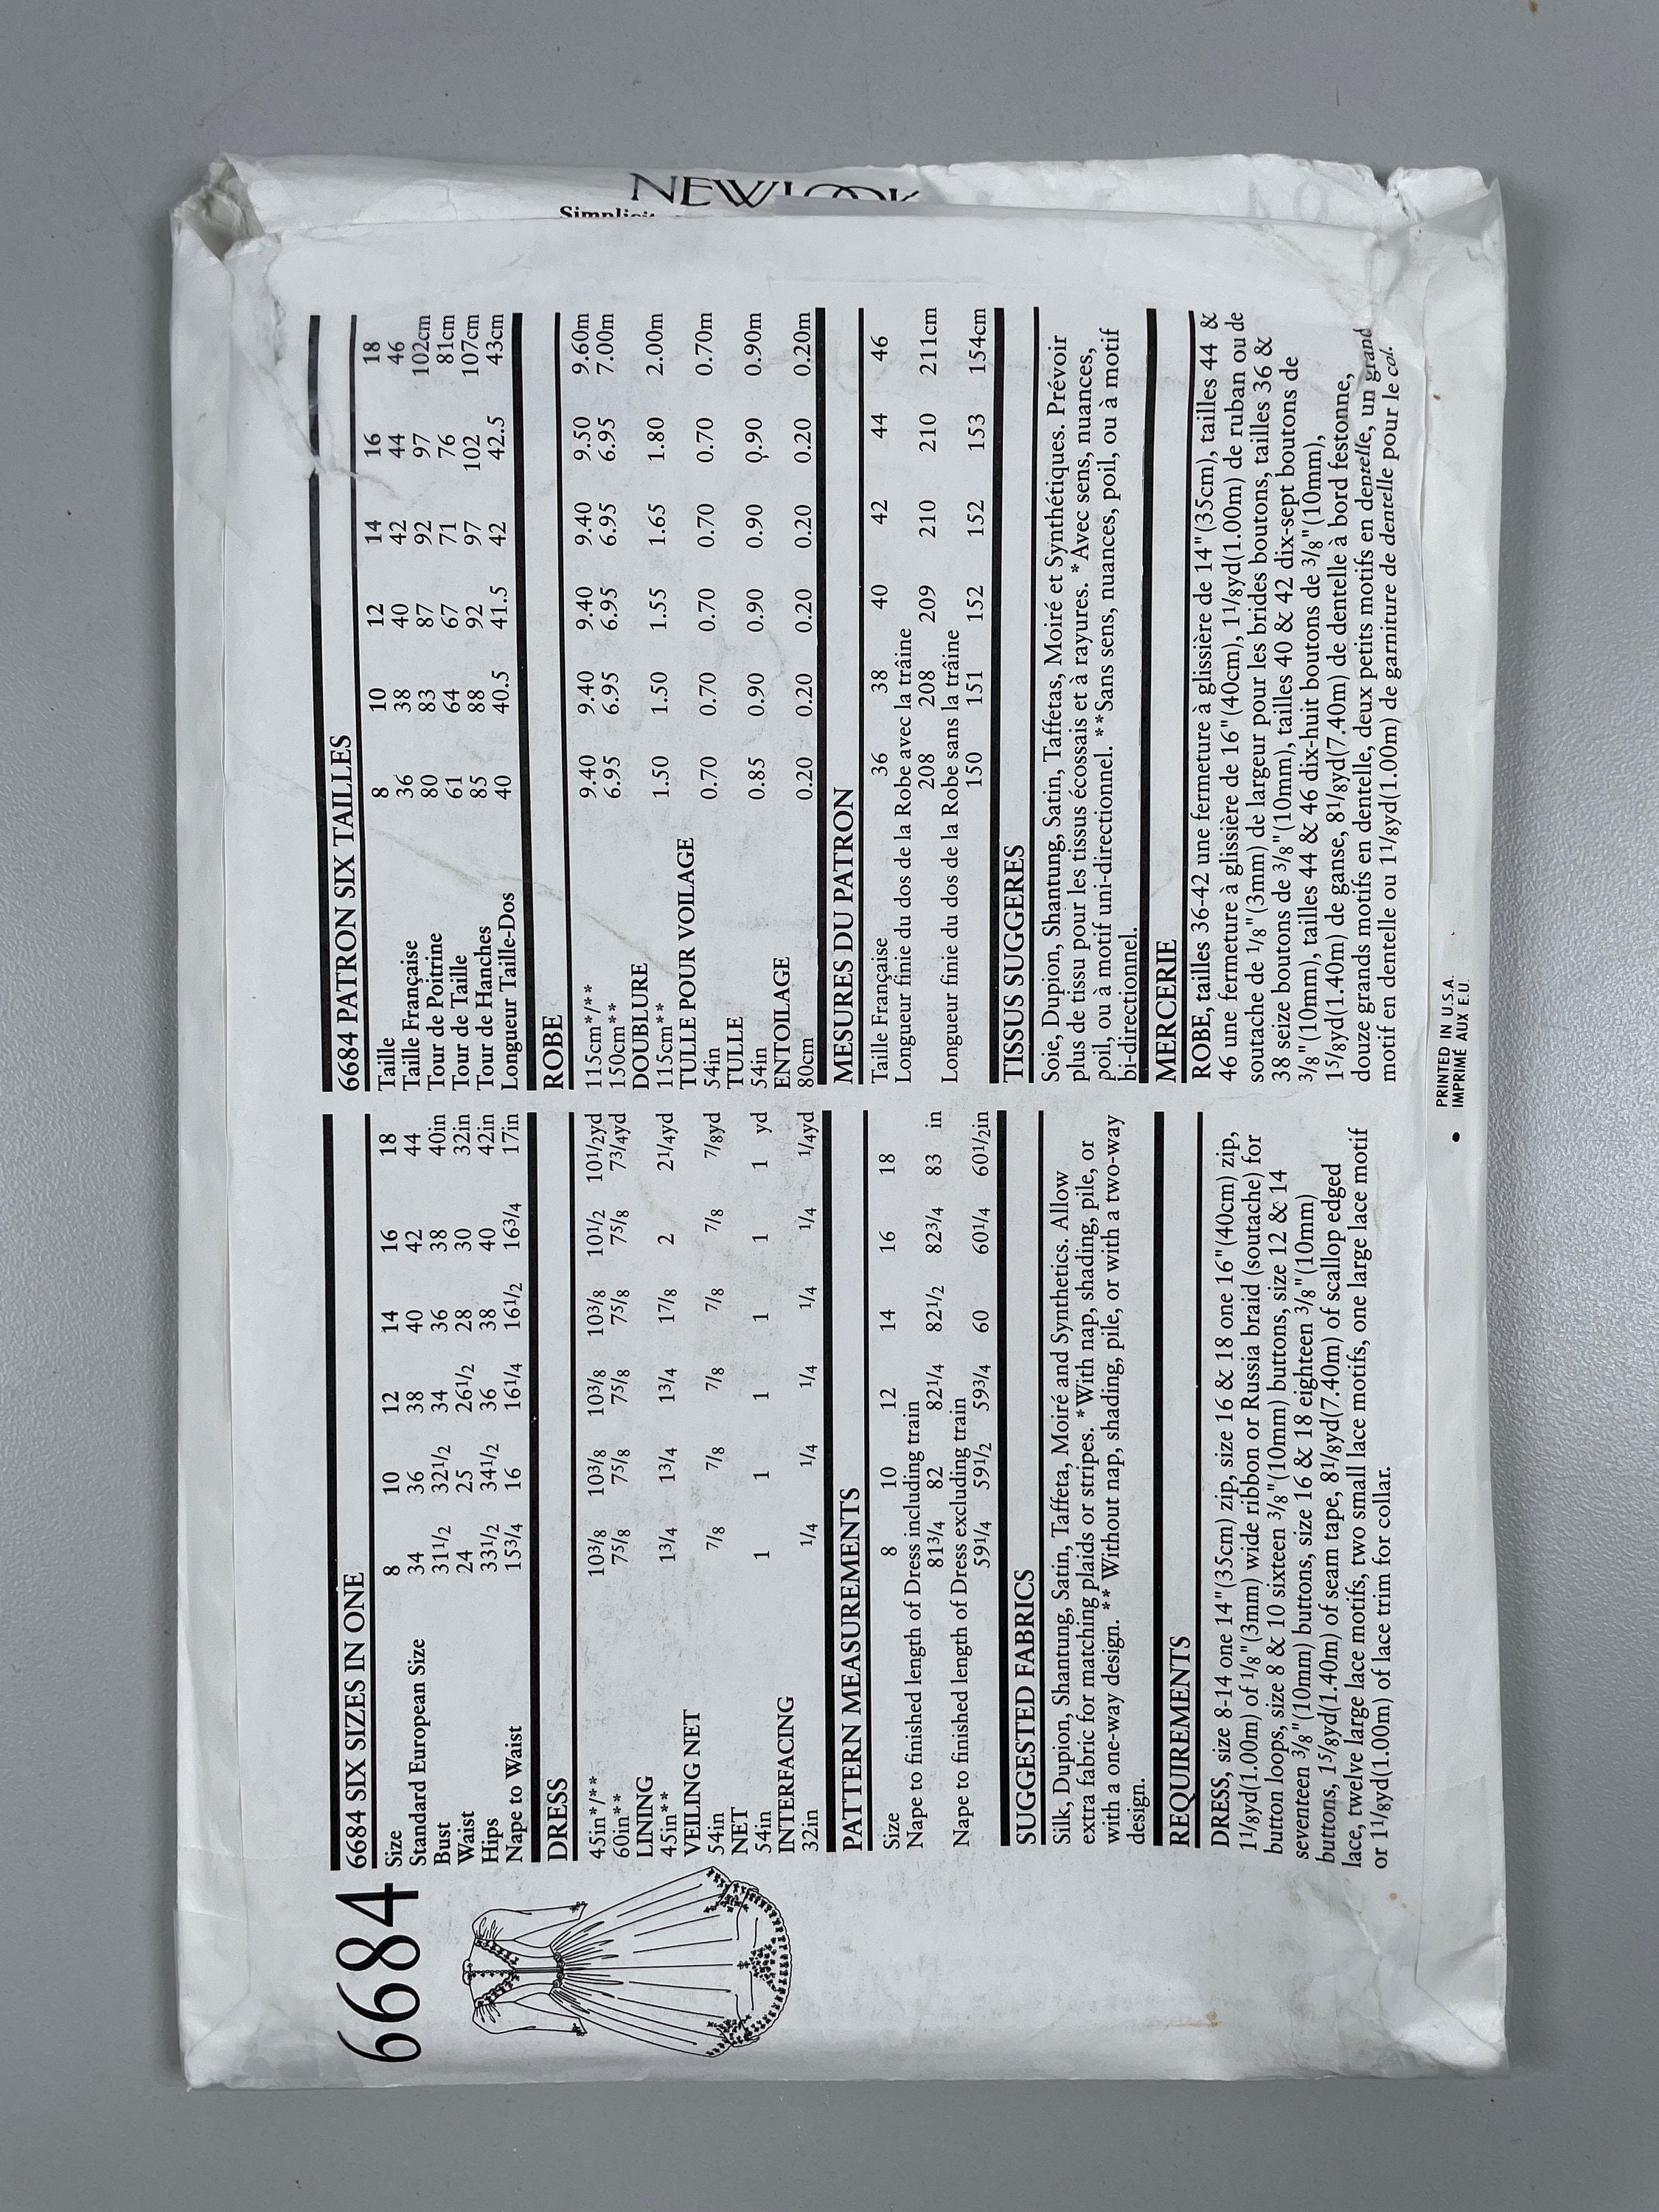 NEW LOOK
6684
6684 SIX SIZES IN ONE
Size 8 10 12 14 16 18
Standard European Size 34 36 38 40 42 44
Bust 31 1/2 32 1/2 34 36 38 40in
Waist 24 25 26 1/2 28 30 32in
Hips 33 1/2 34 1/2 36 38 40 42in
Nape to Waist 15 3/4 16 16 1/4 16 1/2 16 3/4 17in
DRESS
45in*/** 10 3/8 10 3/8 10 3/8 10 3/8 10 1/2 10 1/2yd
60in** 7 5/8 7 5/8 7 5/8 7 5/8 7 5/8 7 3/4yd
LINING
45in** 1 3/4 1 3/4 1 3/4 1 7/8 2 2 1/4yd
VEILING NET
54in 7/8 7/8 7/8 7/8 7/8 7/8yd
NET
54in 1 1 1 1 1 1 yd
INTERFACING
32in 1/4 1/4 1/4 1/4 1/4 1/4yd
PATTERN MEASUREMENTS
Size 8 10 12 14 16 18
Nape to finished length of Dress including train
81 3/4 82 82 1/4 82 1/2 82 3/4 83 in
Nape to finished length of Dress excluding train
59 1/4 59 1/2 59 3/4 60 60 1/4 60 1/2in
SUGGESTED FABRICS
Silk, Dupion, Shantung, Satin, Taffeta, Moiré and Synthetics. Allow
extra fabric for matching plaids or stripes. *With nap, shading, pile, or
with a one-way design. ** Without nap, shading, pile, or with a two-way
design.
REQUIREMENTS
DRESS, size 8-14 one 14"(35cm) zip, size 16 & 18 one 16"(40cm) zip,
1 1/8yd(1.00m) of 1/8"(3mm) wide ribbon or Russia braid (soutache) for
button loops, size 8 & 10 sixteen 3/8"(10mm) buttons, size 12 & 14
seventeen 3/8"(10mm) buttons, size 16 & 18 eighteen 3/8"(10mm)
buttons, 1 5/8yd(1.40m) of seam tape, 8 1/8yd(7.40m) of scallop edged
lace, twelve large lace motifs, two small lace motifs, one large lace motif
or 1 1/8yd(1.00m) of lace trim for collar.
6684 PATRON SIX TAILLES
Taille 8 10 12 14 16 18
Taille Française 36 38 40 42 44 46
Tour de Poitrine 80 83 87 92 97 102cm
Tour de Taille 61 64 67 71 76 81cm
Tour de Hanches 85 88 92 97 102 107cm
Longueur Taille-Dos 40 40.5 41.5 42 42.5 43cm
ROBE
115cm*/** 9.40 9.40 9.40 9.40 9.50 9.60m
150cm** 6.95 6.95 6.95 6.95 6.95 7.00m
DOUBLURE
115cm** 1.50 1.50 1.55 1.65 1.80 2.00m
TULLE POUR VOILAGE
54in 0.70 0.70 0.70 0.70 0.70 0.70m
TULLE
54in 0.85 0.90 0.90 0.90 0.90 0.90m
ENTOILAGE
80cm 0.20 0.20 0.20 0.20 0.20 0.20m
MESURES DU PATRON
Taille Française 36 38 40 42 44 46
Longueur finie du dos de la Robe avec la trâine
208 208 209 210 210 211cm
Longueur finie du dos de la Robe sans la trâine
150 151 152 152 153 154cm
TISSUS SUGGERES
Soie, Dupion, Shantung, Satin, Taffetas, Moiré et Synthétiques. Prévoir
plus de tissu pour les tissus écossais et à rayures. *Avec sens, nuances,
poil, ou à motif uni-directionnel. **Sans sens, nuances, poil, ou à motif
bi-directionnel.
MERCERIE
ROBE, tailles 36-42 une fermeture à glissière de 14"(35cm), tailles 44 &
46 une fermeture à glissière de 16"(40cm), 1 1/8yd(1.00m) de ruban ou de
soutache de 1/8"(3mm) de largeur pour les brides boutons, tailles 36 &
38 seize boutons de 3/8"(10mm), tailles 40 & 42 dix-sept boutons de
3/8"(10mm), tailles 44 & 46 dix-huit boutons de 3/8"(10mm),
1 5/8yd(1.40m) de ganse, 8 1/8yd(7.40m) de dentelle à bord festonne,
douze grands motifs en dentelle, deux petits motifs en dentelle, un grand
motif en dentelle ou 1 1/8yd(1.00m) de garniture de dentelle pour le col.
• PRINTED IN U.S.A.
IMPRIMÉ AUX E.U.